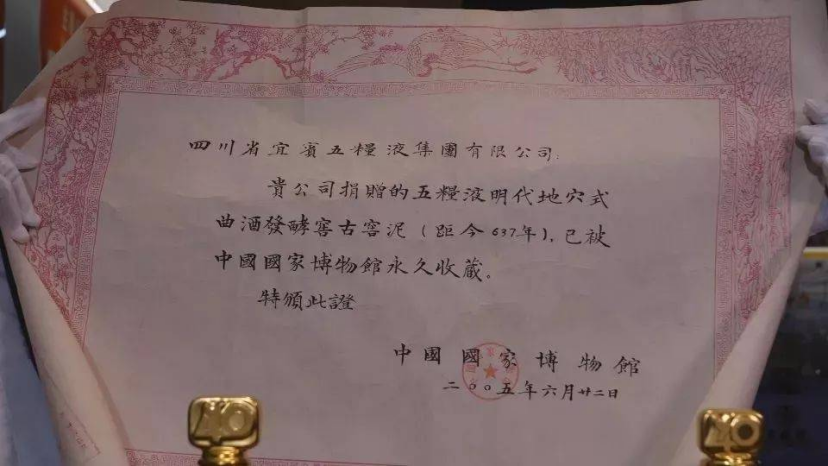 四川省宜賓五糧液集團有限公司:
貴公司捐贈的五糧液明代地穴式
曲酒發酵窖古窖泥(距今637年),已被
中國國家博物館永久收藏。
特頒此證
中國國家博物館
二〇〇五年六月廿二日
40
40